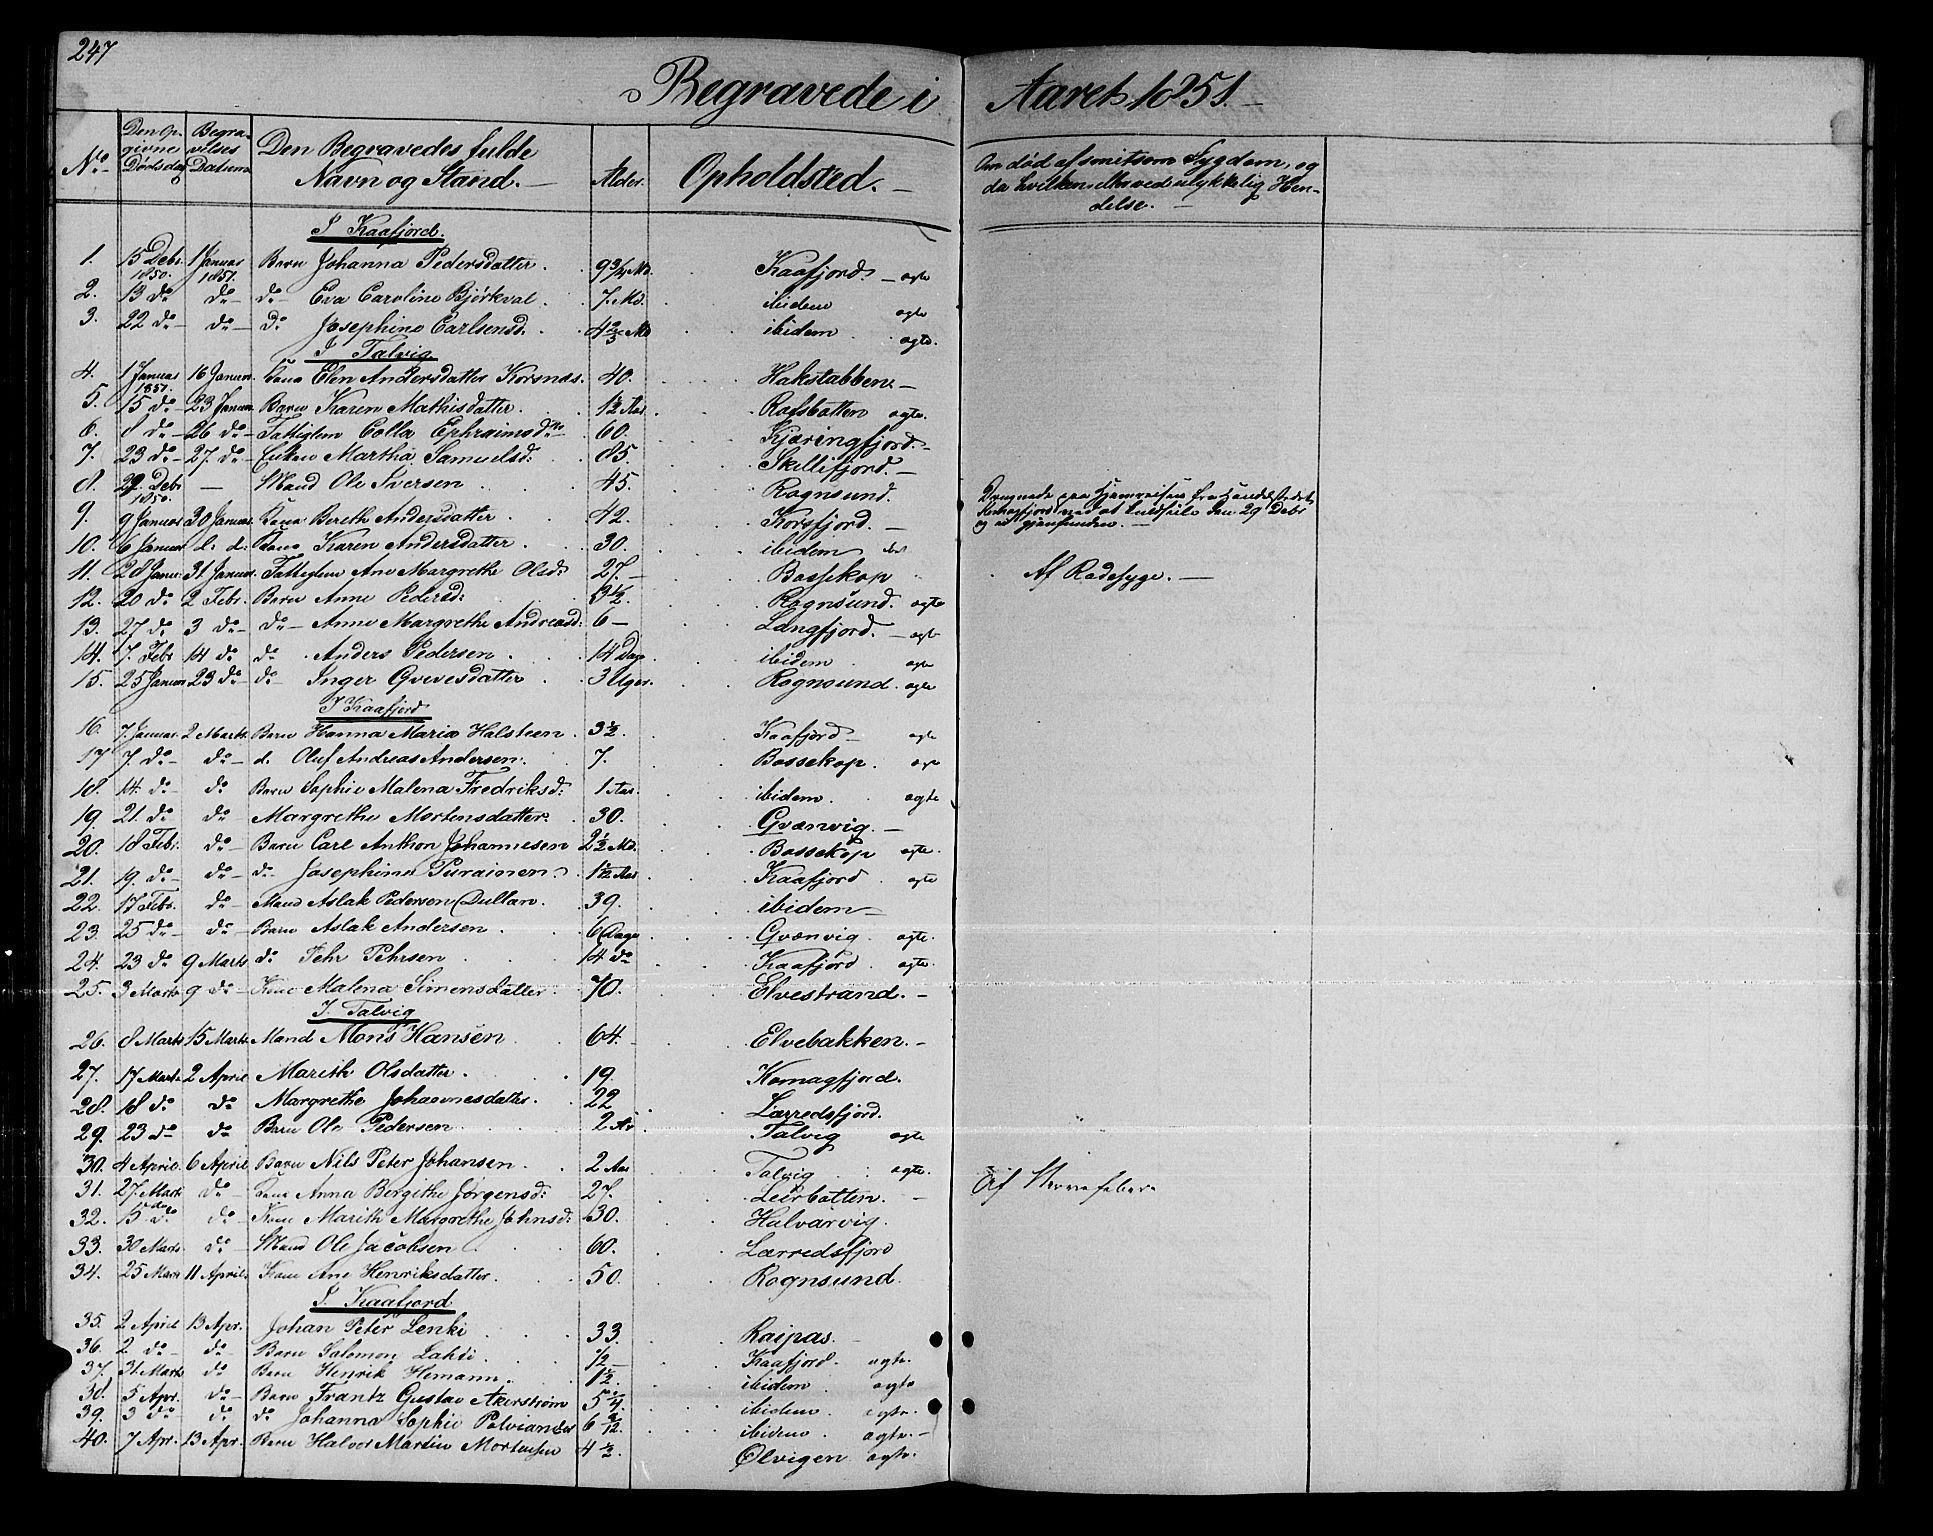 247
Begravede i Aaret 1851.
No. Den Opgivne Dødsdag Begravelses Datum Den Begravedes fulde Navn og Stand. Alder. Opholdsted. Om død af smitsom Sygdom, og da hvilken eller ved ulykkelig Hændelse.
I Kaafjord.
1. 15 Debr. 1850. 1 Januar 1851. Barn Johanna Pedersdatter. 9 3/4 Md. Kaafjord - ægte
2. 13 do do do Eva Caroline Bjørkval. 7. Md. ibidem ægte
3. 22 do do do Josephine Carlsensd. 4 2/3 Md ibidem. ægte.
I Talvig
4. 1 Januar 1851. 16 Januar. Kone Elen Andersdatter Korsnes. 40. Hakstabben.
5. 15 do 23 Januar. Barn Karen Mathisdatter. 1 1/2 Aar. Rafsbotten ægte.
6. 8 do 26 do Fattiglem Colla Ephraimsd. 60. Kjæringfjord.
7. 23 do 27 do Enken Martha Samuelsd: 85. Skillifjord.
8. 29 Debr 1850. - Mand Ole Iversen 45. Rognsund. Druknede paa Hjemreisen fra Handelstedet Komagfjord ved at kuldseile den 29 Debr og ei gjenfunden.
9. 9 Januar 30 Januar. Kone Bereth Andersdatter 42. Korsfjord.
10. 6 Januar d: d: Kone Karen Andersdatter. 30. ibidem
11. 28 Januar. 31 Januar. Fattiglem Ane Margrethe Olsd: 27. Bossekop Af Radesyge.
12. 20 do 2 Febr. Barn Anne Pedersd: 3 1/2. Rognsund. ægte
13. 27 do 3 do do Anne Margrethe Andreasd: 6 Langfjord. ægte
14. 7. Febr 14 do do Anders Pedersen 14 Dage ibidem ægte
15. 25 Januar 23 do do Inger Qvivesdatter 3 Uger. Rognsund. ægte
I Kaafjord
16. 7 Januar. 2 Marts. Barn Hanna Maria Halsteen. 3 1/2. Kaafjord ægte
17 7. do do d. Oluf Andreas Andersen. 7. Bossekop. ægte
18. 14. do do Barn Sophie Malena Fredriksd: 1 Aar. ibidem. ægte
19. 21. do do Margrethe Mortensdatter. 30. Qvænvig.
20. 18 Febr. do Barn Carl Anthon Johannesen 2 1/2 Md. Bossekop ægte.
21. 19. do do do Josephina Purainen. 1 1/2 Aar Kaafjord. ægte
22. 17 Febr. do Mand Aslak Pedersen Dullan. 39. ibidem
23. 25 do do Barn Aslak Andersen 6 Dage Qvænvig. ægte.
24. 23 do 9 Marts do Pehr Pehrsen 14 do Kaafjord. ægte.
25. 3 Marts 9 do Kone Malena Simensdatter. 70. Elvestrand.
I. Talvig
26. 8 Marts 15 Marts. Mand Mons Hansen 64. Elvebakken.
27. 17 Marts 2 April Marith Olsdatter. 19. Komagfjord.
28. 18 do do Margrethe Johannesdatter. 22 Lærredsfjord.
29. 23 do do Barn Ole Pedersen 2 Ar Talvig ægte
30. 4 April. 6 April. Barn Nils Peter Johansen. 2 Aar Talvig ægte.
31. 27. Marts do Kone Anna Bergithe Jørgensd: 27. Leirbotten. Af Nervefeber.
32. 15 do do Kone Marith Margrethe Johnsd: 30. Halvarvig.
33. 30 Marts do Mand Ole Jacobsen 60. Lærredsfjord
34. 25 Marts 11 April. Kone Ane Henriksdatter. 50. Rognsund.
I. Kaafjord
35. 2 April 13 Apr. Johan Peter Lenki 33. Raipas.
36. 2 do do Barn Salomon Lahti. 1/2 Kaafjord. ægte.
37. 31. Marts do Barn Henrik Hemann. 1 1/2. ibidem. ægte
38. 5 Apr. do Barn Frantz Gustav Akerstrøm 5 1/4. ibidem. ægte.
39. 3 do do do Johanna Sophie Palviander 6 2/12. ibidem. ægte.
40. 7 Apr. 13 Apr. Barn Halvor Martin Mortensen 4 1/2. Ølvigen ægte.